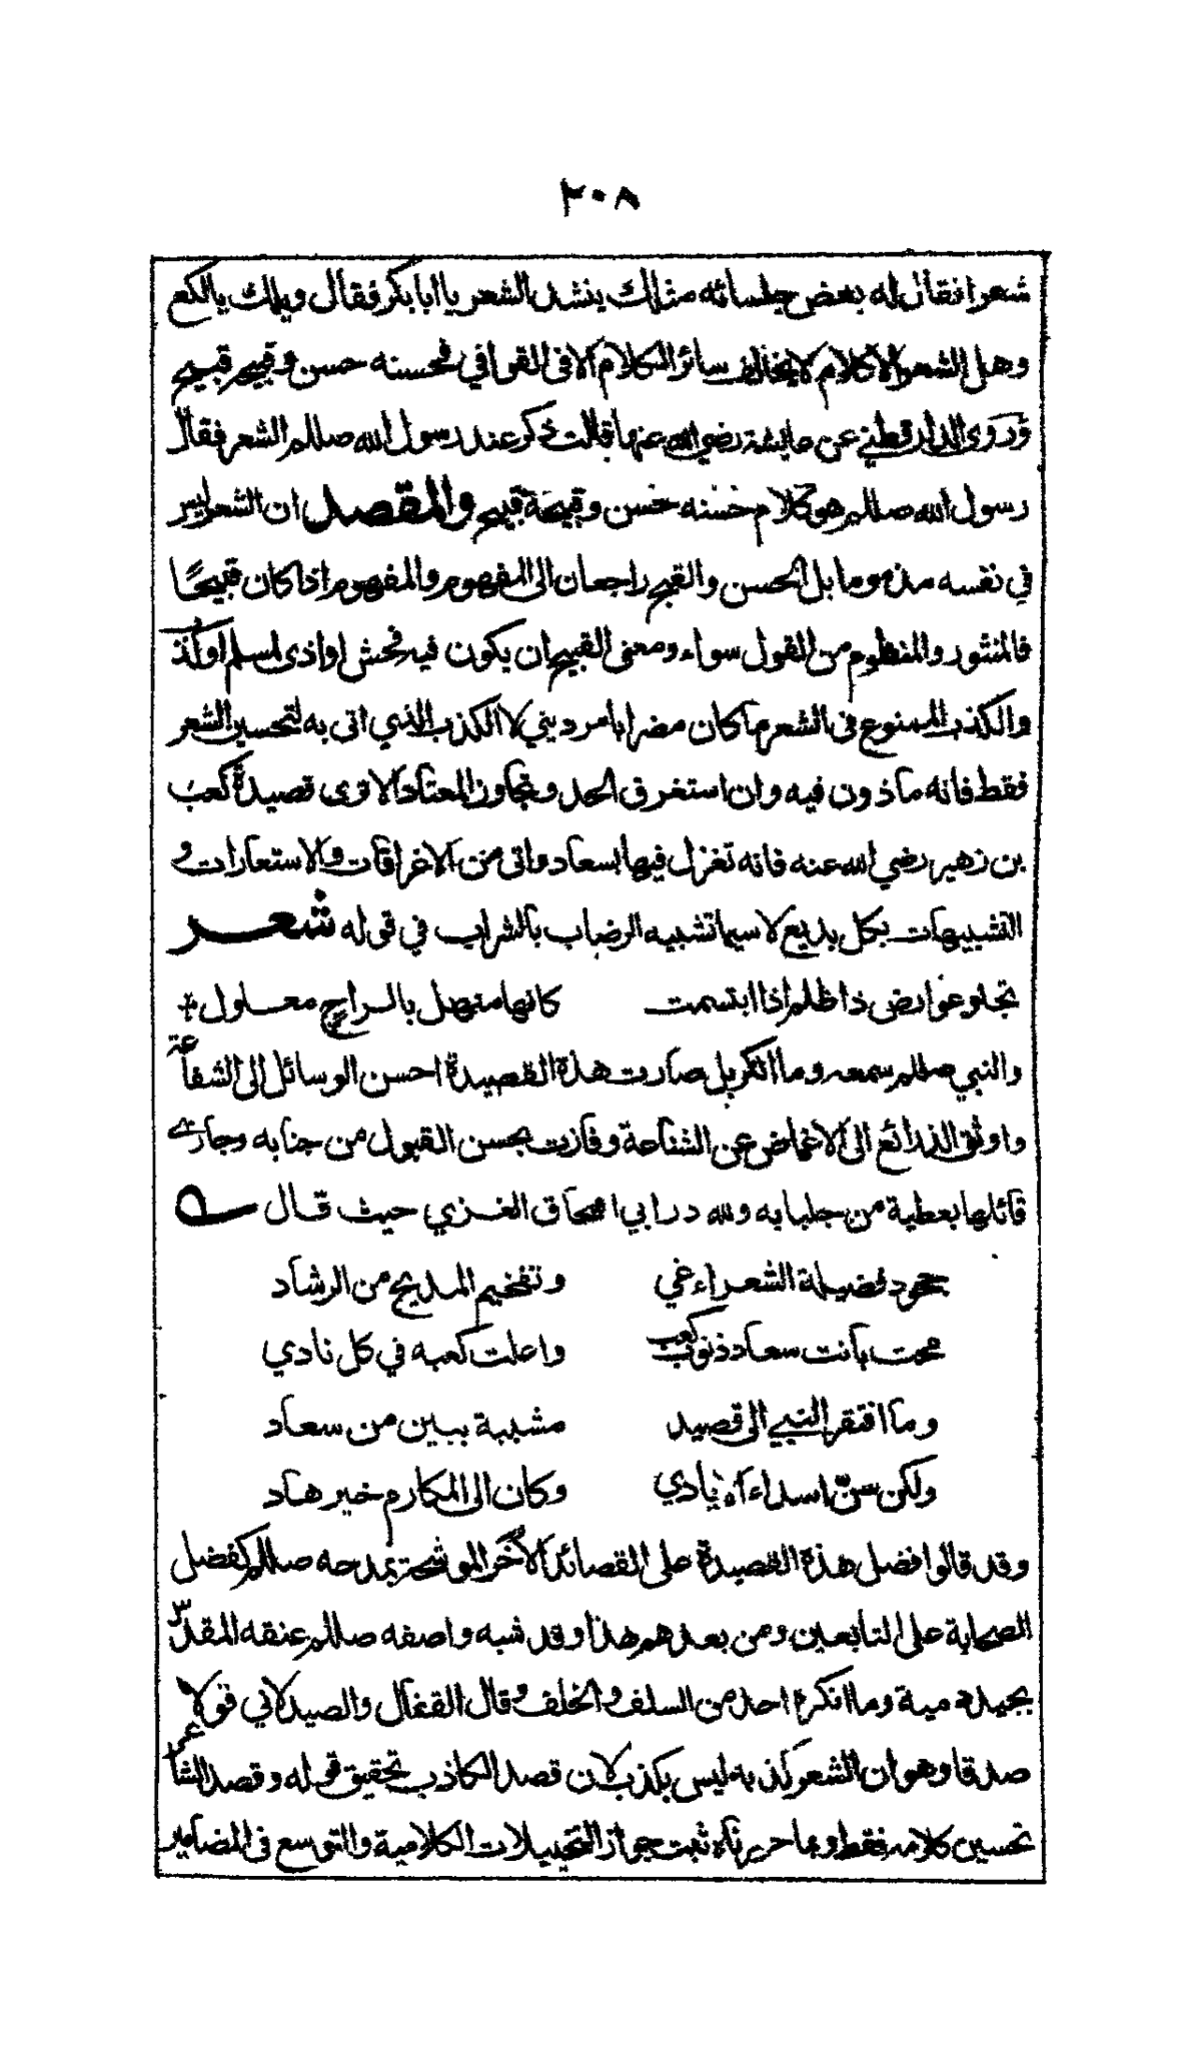 ٢٠٨
شعرا فقال له بعض جلسائه مثلك ينشد الشعر يا ابا بكر فقال ويلك يا لكع
وهل الشعر الا كلام لا يخالف سائر الكلام الا فى القوافي فحسنه حسن وقبيحه قبيح
وروى الدارقطني عن عايشة رضي الله عنها قالت ذكر عند رسول الله صللم الشعر فقال
رسول الله صللم هو كلام حسنه حسن وقبيحة قبيح والمقصد ان الشعر ليس
في نفسه مذموما بل الحسن والقبح راجعان الى المفهوم والمفهوم اذا كان قبيحًا
فالمنثور والمنظوم من القول سواء ومعنى القبيح ان يكون فيه فحش او اذى لمسلم او كذب
والكذب الممنوع فى الشعر ما كان مضرا بامر ديني لا الكذب الذي اتى به لتحسين الشعر
فقط فانه ماذون فيه وان استغرق الحد وتجاوز المعتاد الا ترى قصيدة كعب
بن زهير رضي الله عنه فانه تغزل فيها بسعاد واتى من الاغراقات والاستعارات و
التشبيهات بكل بديع لا سيما تشبيه الرضاب بالشراب في قوله شعر
تجلو عوارض ذا ظلم اذا ابتسمت كانها منهل بالراح معلول
والنبي صللم سمعه وما انكر بل صارت هذة القصيدة احسن الوسائل الى الشفاعة
واوثق الذرائع الى الاغماض عن الشناعة وفازت بحسن القبول من جنابه وجازے
قائلها بعطية من جلبابه ولله در ابي اسحاق الغزي حيث قال ه
جحود فضيلة الشعراء غي وتفخيم المديح من الرشاد
محت بانت سعاد ذنوب كعب واعلت كعبه في كل نادي
وما افتقر النبي الى قصيد مشببة ببين من سعاد
ولكن سنّ اسداء الايادي وكان الى المكارم خير هاد
وقد قالوا فضل هذة القصيدة على القصائد الاخر الموشحة بمدحه صللم كفضل
الصحابة على التابعين ومن بعدهم هذا وقد شبه واصفه صللم عنقه المقدّس
بجيد دمية وما انكرة احد من السلف والخلف وقال القفال والصيدلاني قولا
صدقا وهو ان الشعر كذبه ليس بكذب لان قصد الكاذب تحقيق قوله وقصد الشاعر
تحسين كلامه فقط وبما حررناه ثبت جواز التخييلات الكلامية والتوسع فى المضامير